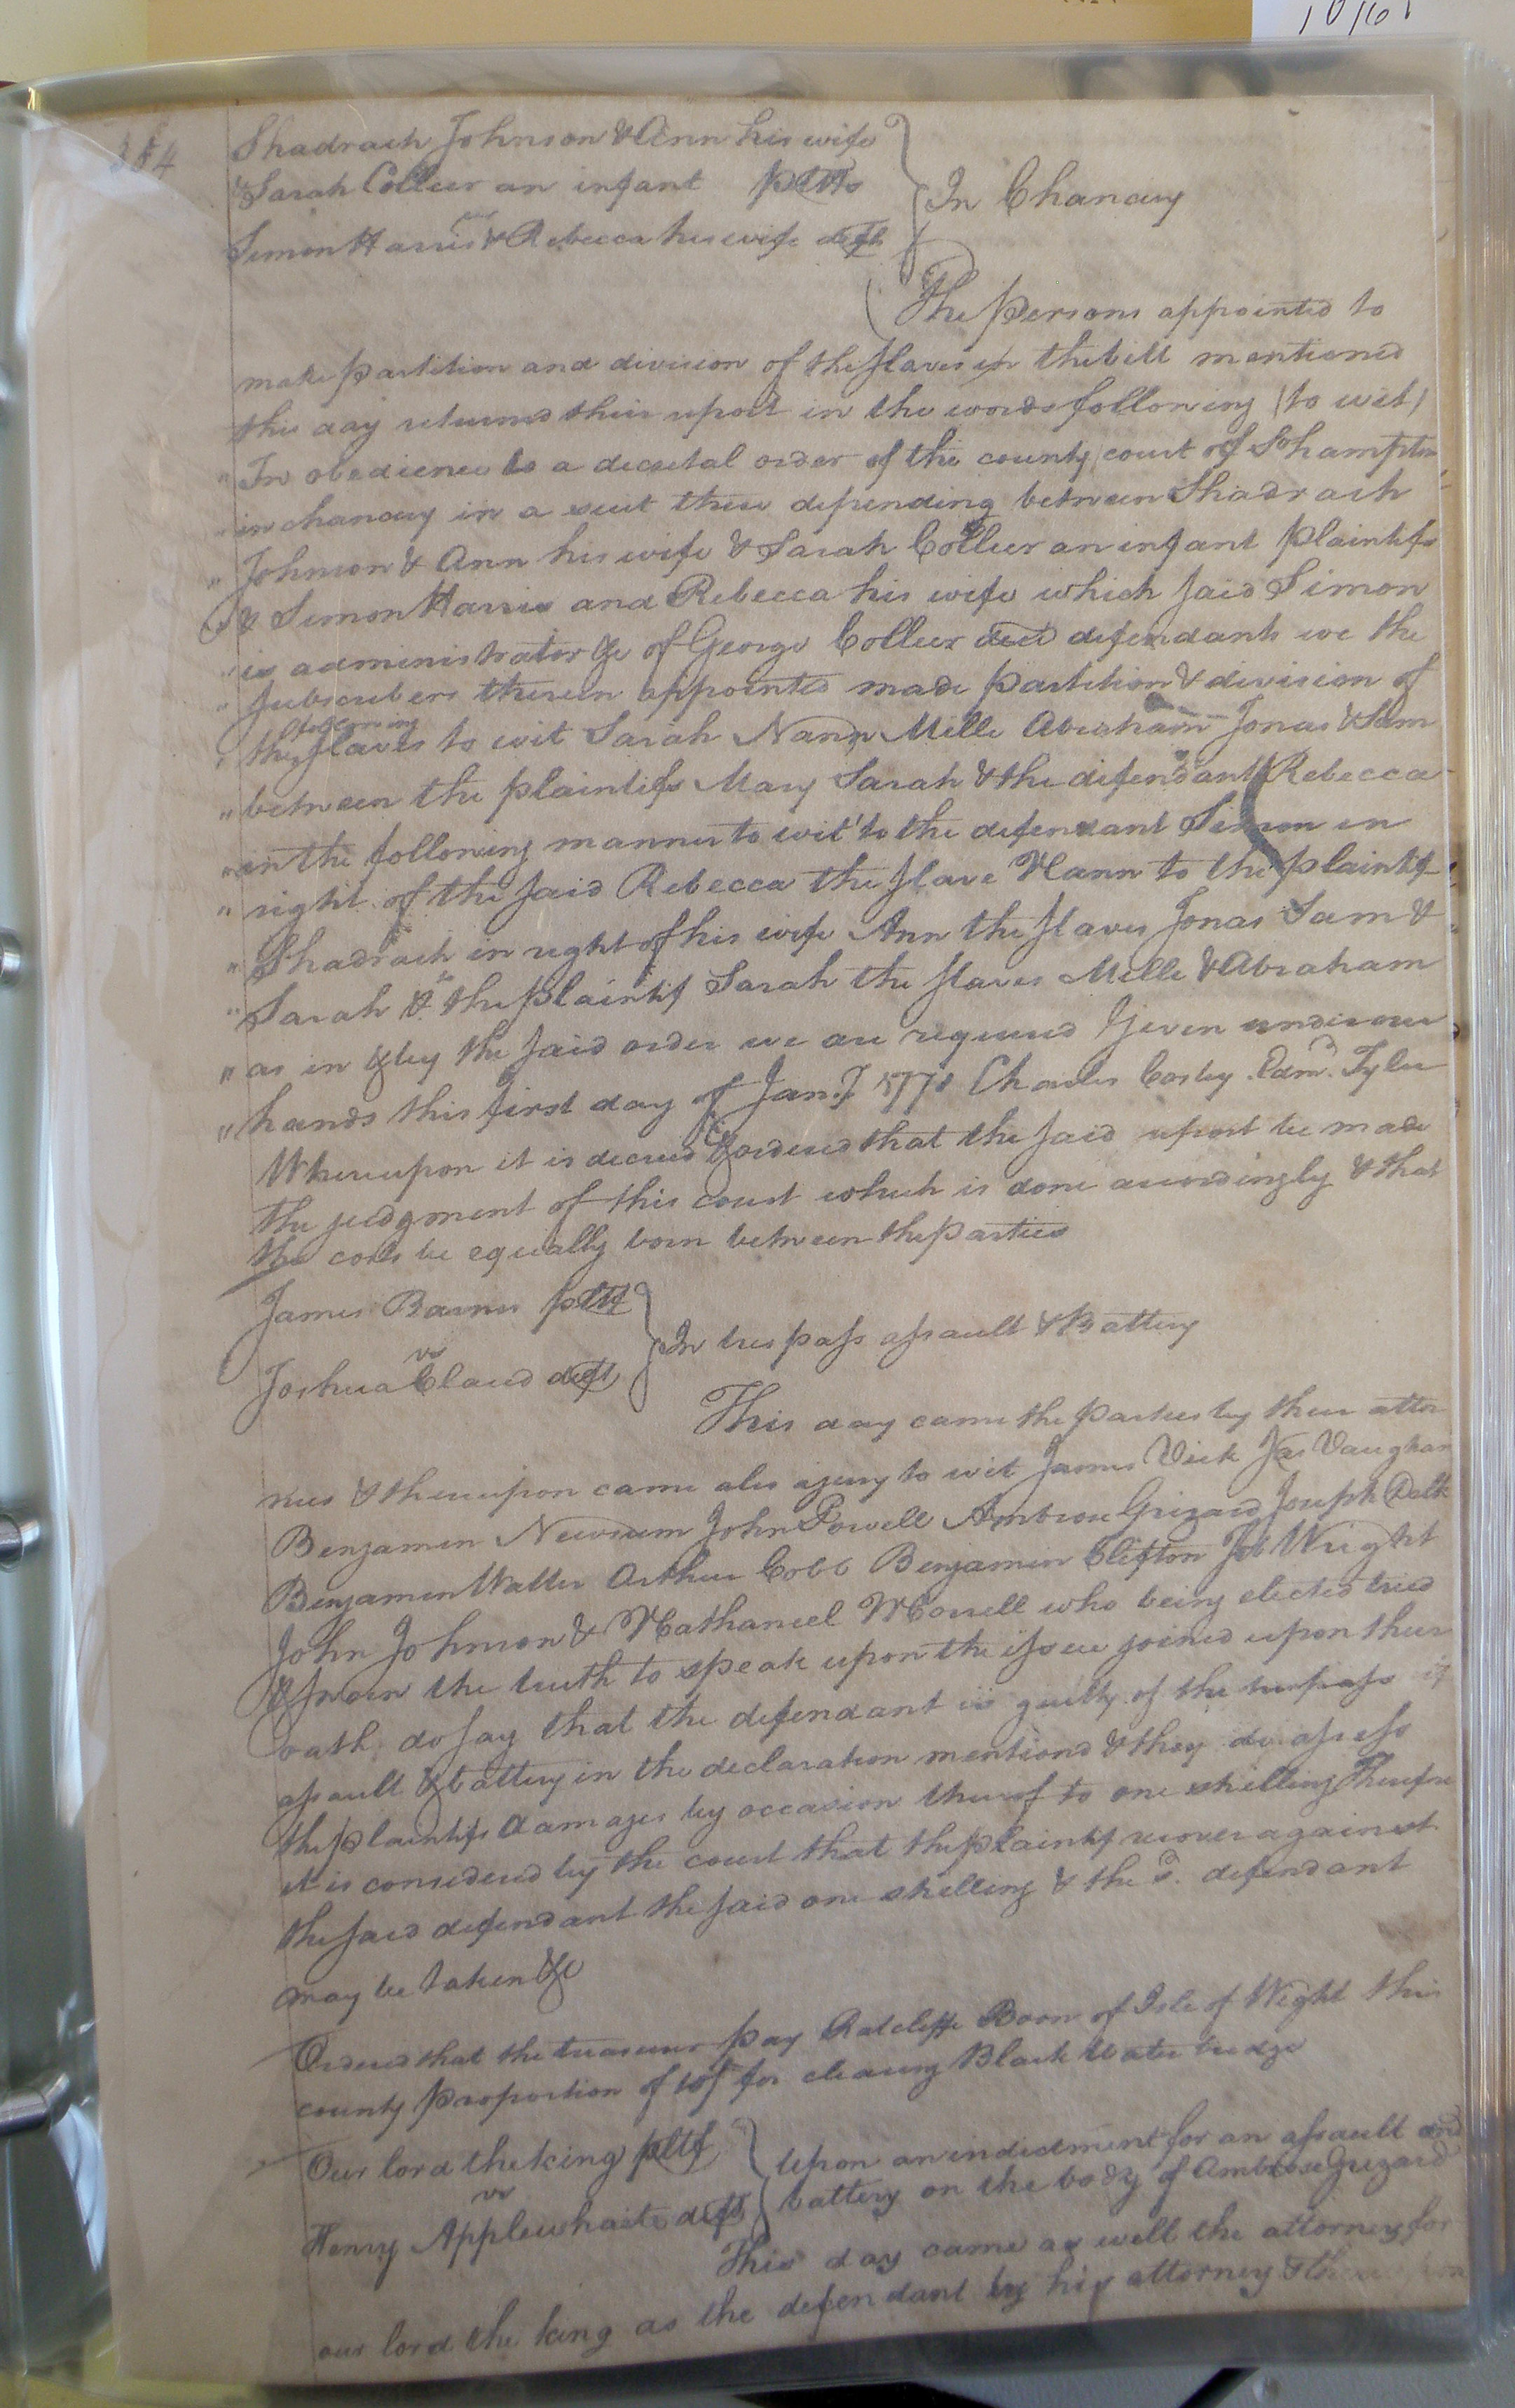 384
Shadrach Johnson & Ann his wife
& Sarah Collier an infant pltfs
In Chancery
Simon Harris & Rebecca his wife defts
The persons appointed to
make partition and division of the slaves in the bill mentioned
this day returned their report in the words following (to wit)
" In obedience to a decretal order of the county court of Sohampton
" in chancery in a suit there depending between Shadrach
" Johnson & Ann his wife & Sarah Collier an infant plaintifs
" & Simon Harris and Rebecca his wife which said Simon
" is administrator &c of George Collier decd defendants we the
" subscribers therein appointed made partition & division of
" the following slaves to wit Sarah Nann Mille Abraham Jonas & Sam
" between the plaintifs Mary Sarah & the defendant Rebecca
" in the following manner to wit to the defendant Simon in
" right of the said Rebecca the slave Nann to the plaintif
" Shadrach in right of his wife Ann the slaves Jonas Sam &
" Sarah & to the plaintif Sarah the slaves Mille & Abraham
" as in & by the said order we are required Given under our
" hands this first day of Jany. 1771 Charles Cosby. Edmd. Tyler
Whereupon it is decreed & ordered that the said report be made
the judgment of this court which is done accordingly & that
the costs be equally born between the parties
James Barnes pltf
vs
In trespass assault & Battery
Joshua Claud deft
This day came the parties by their attor
nies & thereupon came also a jury to wit James Vick Jas Vaughan
Benjamin Newsum John Powell Ambrose Grizard Joseph Delk
Benjamin Waller Arthur Cobb Benjamin Clifton Job Wright
John Johnson & Nathaniel Worrell who being elected tried
& sworn the truth to speak upon the issue joined upon their
oath do say that the defendant is guilty of the trespass
assault & battery in the declaration mentiond & they do assess
the plaintifs damages by occasion thereof to one shilling Therefore
it is considered by the court that the plaintif recover against
the said defendant the said one shilling & the sd. defendant
may be taken &c
Ordered that the treasurer pay Ratcliffe Boon of Isle of Wight this
county proportion of for clearing Black Water bridge
Our lord the king pltf
vs
Upon an indictment for an assault and
battery on the body of Ambrose Grizard
Henry Applewhaite deft
This day came as well the attorney for
our lord the king as the defendant by his attorney &